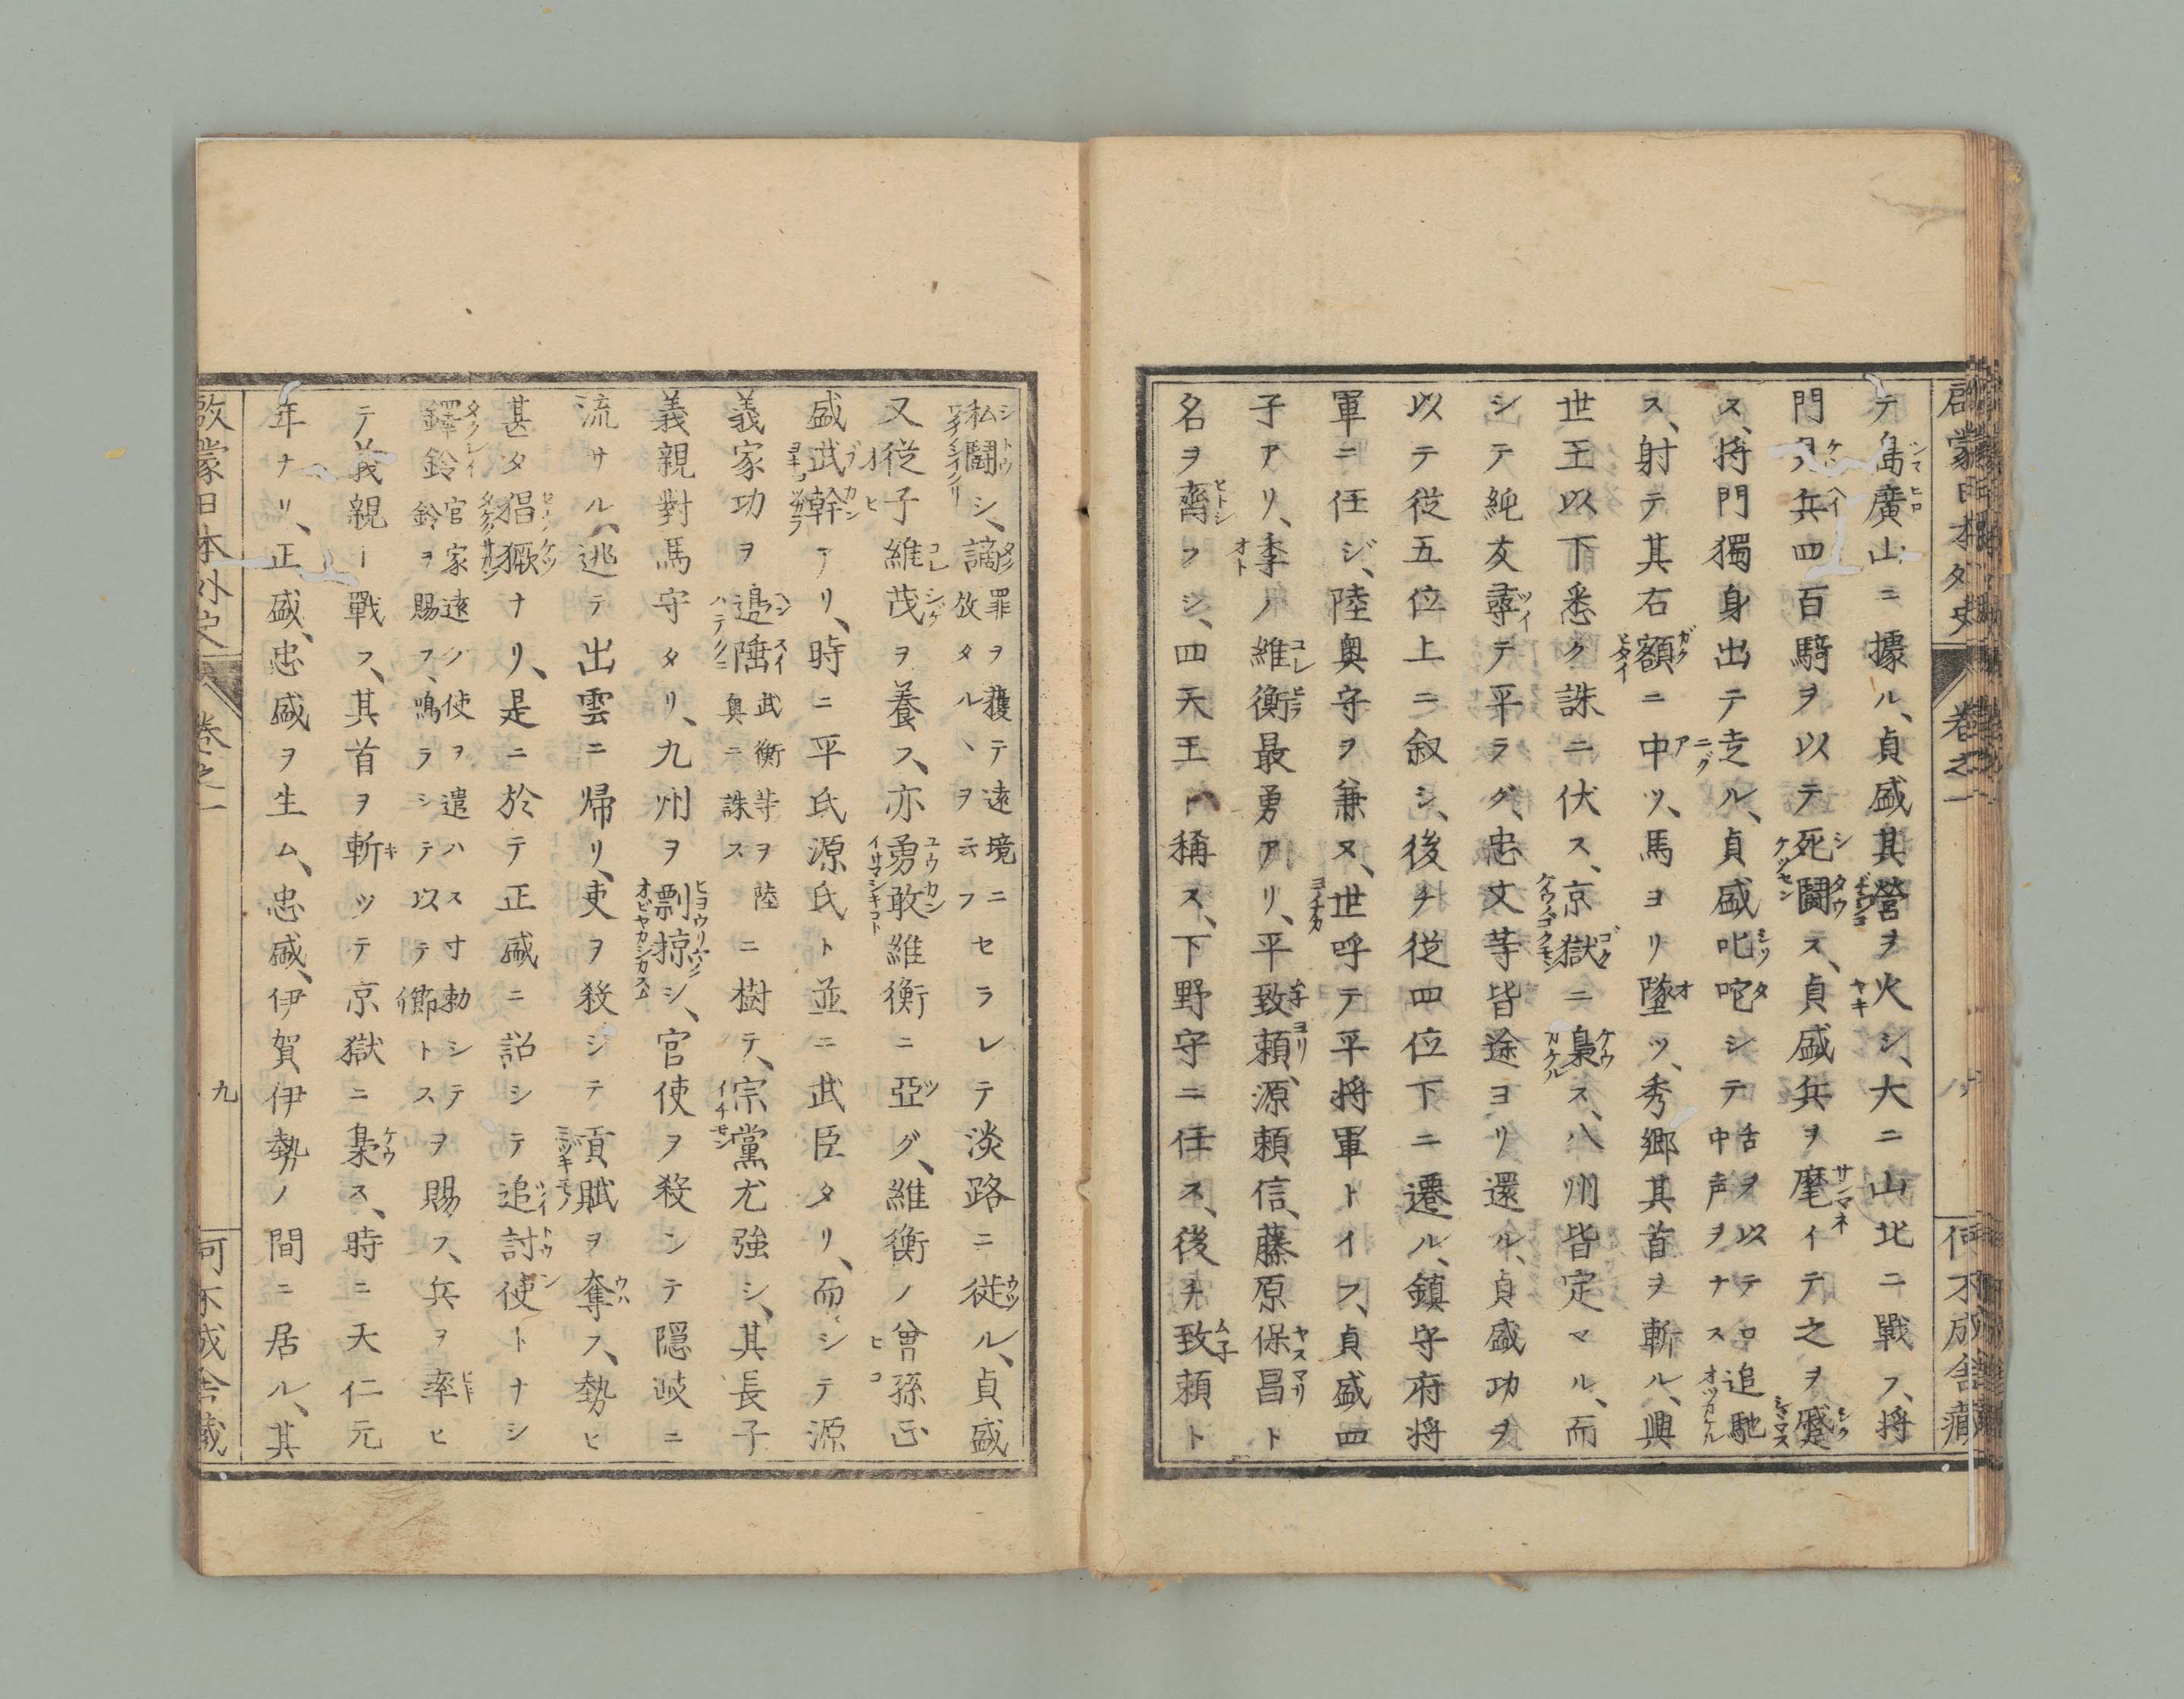 啟蒙日本外史 卷之一 八 何不成舍藏
テ島廣山ニ據ル、貞盛其營ヲ火シ、大ニ山北ニ戰フ、將
門ヌ兵四百騎ヲ以テ死鬪ス、貞盛兵ヲ麾イテ之ヲ蹙
ス、將門獨身出テ走ル、貞盛叱咤シテ舌ヲ以テ口中声ヲナス追馳
ス、射テ其右額ニ中ツ、馬ヨリ墜ツ、秀郷其首ヲ斬ル、興
世王以下悉ク誅ニ伏ス、京獄ニ梟ス、八州皆定マル、而
シテ純友尋テ平ラグ、忠文䓁皆途ヨリ還ル、貞盛功ヲ
以テ從五位上ニ叙シ、後チ從四位下ニ遷ル、鎮守府將
軍ニ任ジ、陸奧守ヲ兼ヌ、世呼テ平將軍トイフ、貞盛四
子アリ、季ノ維衡最勇アリ、平致頼、源頼信、藤原保昌ト
名ヲ齊フシ、四天王ト稱ス、下野守ニ任ス、後チ致頼ト
私鬪シ、謫罪ヲ獲テ遠境ニ放タル、ヲ云フセラレテ淡路ニ徙ル、貞盛
又從子維茂ヲ養フ、亦勇敢維衡ニ亞グ、維衡ノ曾孫正
盛武幹アリ、時ニ平氏源氏ト並ニ武臣タリ、而シテ源
義家功ヲ邉陲武衡䓁ヲ陸奧ニ誅スニ樹テ、宗黨尤強シ、其長子
義親對馬守タリ、九州ヲ剽掠シ、官使ヲ殺ンテ隱岐ニ
流サル、逃テ出雲ニ帰リ、吏ヲ殺シテ貢賦ヲ奪フ、勢ヒ
甚タ猖獗ナリ、是ニ於テ正盛ニ詔シテ追討使トナシ
鐸鈴官家遠ノ使ヲ遣ハス寸勅シテ鈴ヲ賜フ、鳴ラシテ以テ節トスヲ賜フ、兵ヲ率ヒ
テ義親ト戰フ、其首ヲ斬ツテ京獄ニ梟ス、時ニ天仁元
年ナリ、正盛、忠盛ヲ生ム、忠盛、伊賀伊勢ノ間ニ居ル、其
啟蒙日本外史 卷之一 九 何不成舍藏